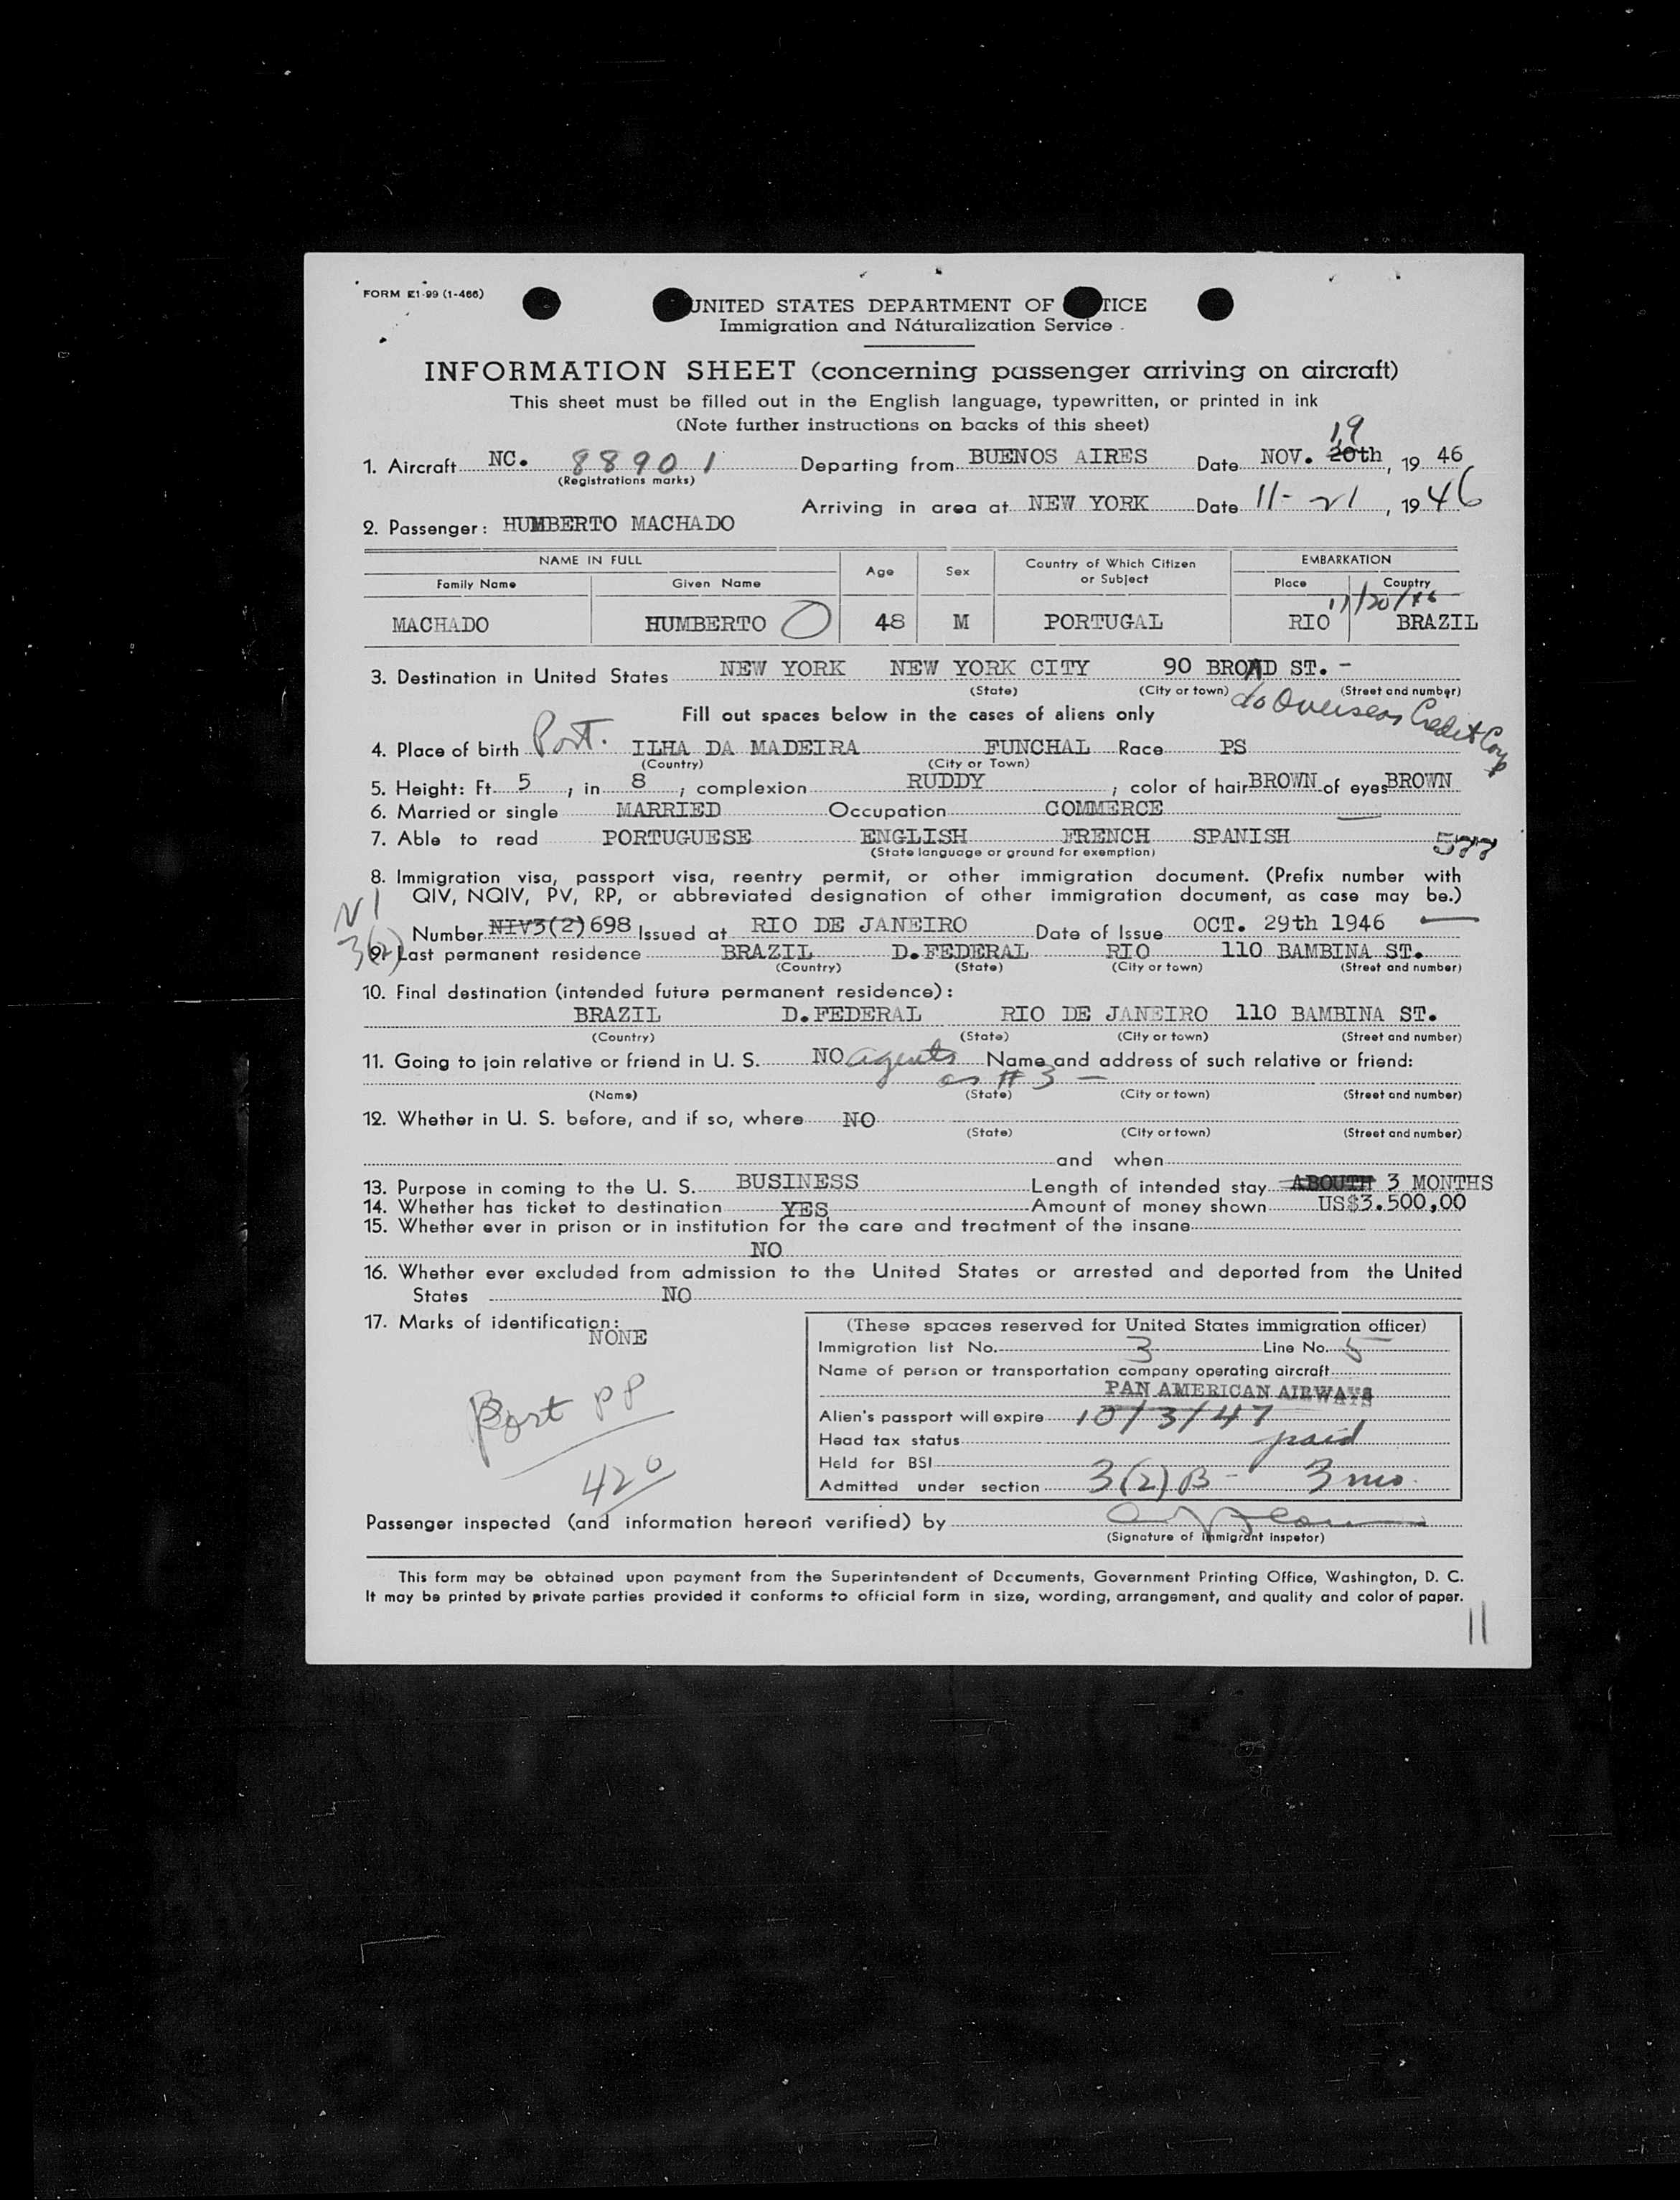 FORM E1-99 (1-466)
UNITED STATES DEPARTMENT OF TICE
Immigration and Naturalization Service
INFORMATION SHEET (concerning passenger arriving on aircraft)
This sheet must be filled out in the English language, typewritten, or printed in ink
(Note further instructions on backs of this sheet)
19
1. Aircraft NC. 88901 Departing from BUENOS AIRES Date NOV. 20th, 19 46
(Registrations marks)
Arriving in area at NEW YORK Date 11-21, 19 46
2. Passenger: HUMBERTO MACHADO
NAME IN FULL Age Sex Country of Which Citizen or Subject EMBARKATION
Family Name Given Name Place Country
11/20/46
MACHADO HUMBERTO O 48 M PORTUGAL RIO BRAZIL
3. Destination in United States NEW YORK NEW YORK CITY 90 BROAD ST. -
(State) (City or town) (Street and number)
c/o Overseas Credit Corp
Fill out spaces below in the cases of aliens only
4. Place of birth Port. ILHA DA MADEIRA FUNCHAL Race PS
(Country) (City or Town)
5. Height: Ft. 5, in 8; complexion RUDDY; color of hair BROWN of eyes BROWN
6. Married or single MARRIED Occupation COMMERCE
7. Able to read PORTUGUESE ENGLISH FRENCH SPANISH
(State language or ground for exemption) 577
8. Immigration visa, passport visa, reentry permit, or other immigration document. (Prefix number with
QIV, NQIV, PV, RP, or abbreviated designation of other immigration document, as case may be.)
VI
3(2)
Number NIV3(2)698 Issued at RIO DE JANEIRO Date of Issue OCT. 29th 1946
9. Last permanent residence BRAZIL D.FEDERAL RIO 110 BAMBINA ST.
(Country) (State) (City or town) (Street and number)
10. Final destination (intended future permanent residence):
BRAZIL D.FEDERAL RIO DE JANEIRO 110 BAMBINA ST.
(Country) (State) (City or town) (Street and number)
11. Going to join relative or friend in U. S. NO agents Name and address of such relative or friend:
as # 3 -
(Name) (State) (City or town) (Street and number)
12. Whether in U. S. before, and if so, where NO
(State) (City or town) (Street and number)
and when
13. Purpose in coming to the U. S. BUSINESS Length of intended stay ABOUTH 3 MONTHS
14. Whether has ticket to destination YES Amount of money shown US$3.500,00
15. Whether ever in prison or in institution for the care and treatment of the insane
NO
16. Whether ever excluded from admission to the United States or arrested and deported from the United
States NO
17. Marks of identification:
NONE
Port PP
420
(These spaces reserved for United States immigration officer)
Immigration list No. 3 Line No. 5
Name of person or transportation company operating aircraft
PAN AMERICAN AIRWAYS
Alien's passport will expire 10/3/47
Head tax status paid
Held for BSI
Admitted under section 3(2)B - 3 mo.
Passenger inspected (and information hereon verified) by
(Signature of immigrant inspetor)
This form may be obtained upon payment from the Superintendent of Documents, Government Printing Office, Washington, D. C.
It may be printed by private parties provided it conforms to official form in size, wording, arrangement, and quality and color of paper.
11